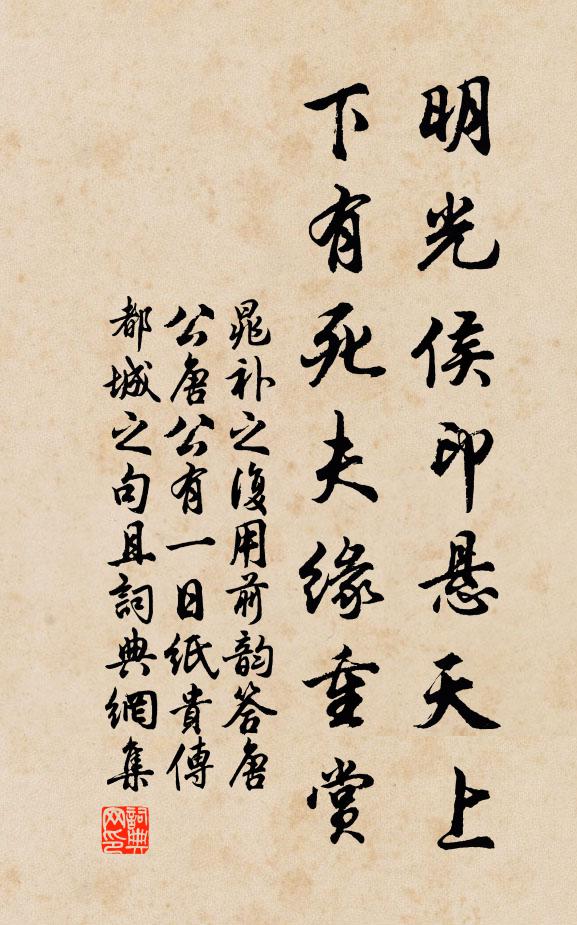 明光侯印悬天上
下有死夫缘重赏
晁补之復用前韵答唐
公唐公有一日纸貴傳
都城之句且詞典網集
詞典网印